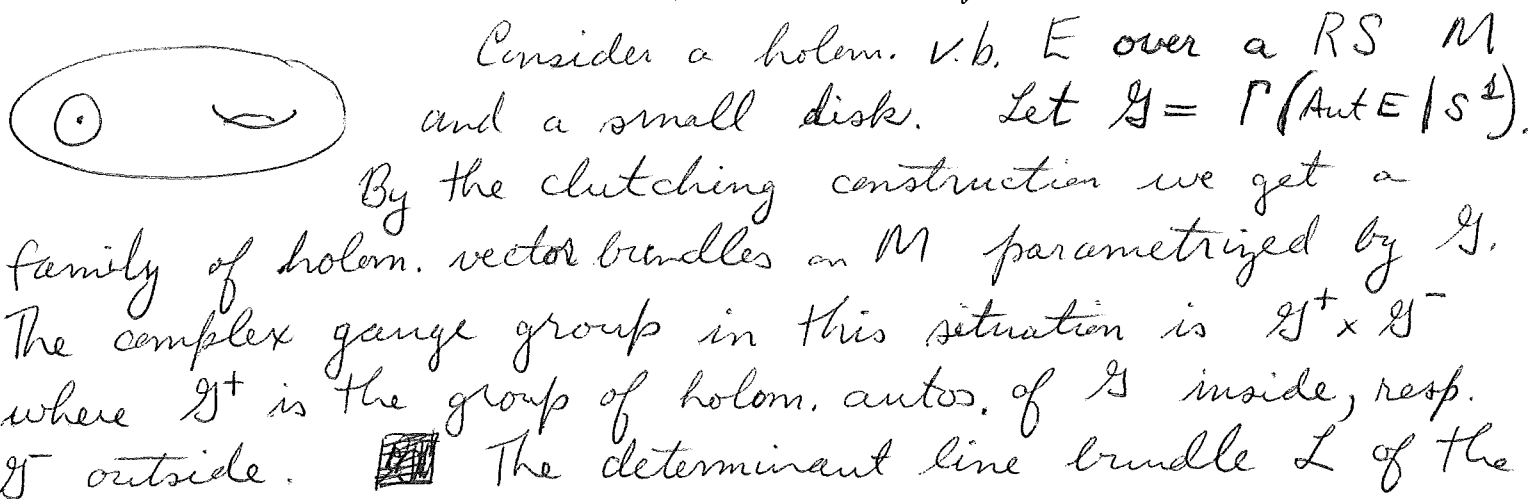 Consider a holom. v.b. E over a RS M
and a small disk. Let 𝒢 = Γ(Aut E | S¹).
By the clutching construction we get a
family of holom. vector bundles on M parametrized by 𝒢.
The complex gauge group in this situation is 𝒢⁺ x 𝒢⁻
where 𝒢⁺ is the group of holom. autos. of 𝒢 inside, resp.
𝒢⁻ outside. The determinant line bundle L of the